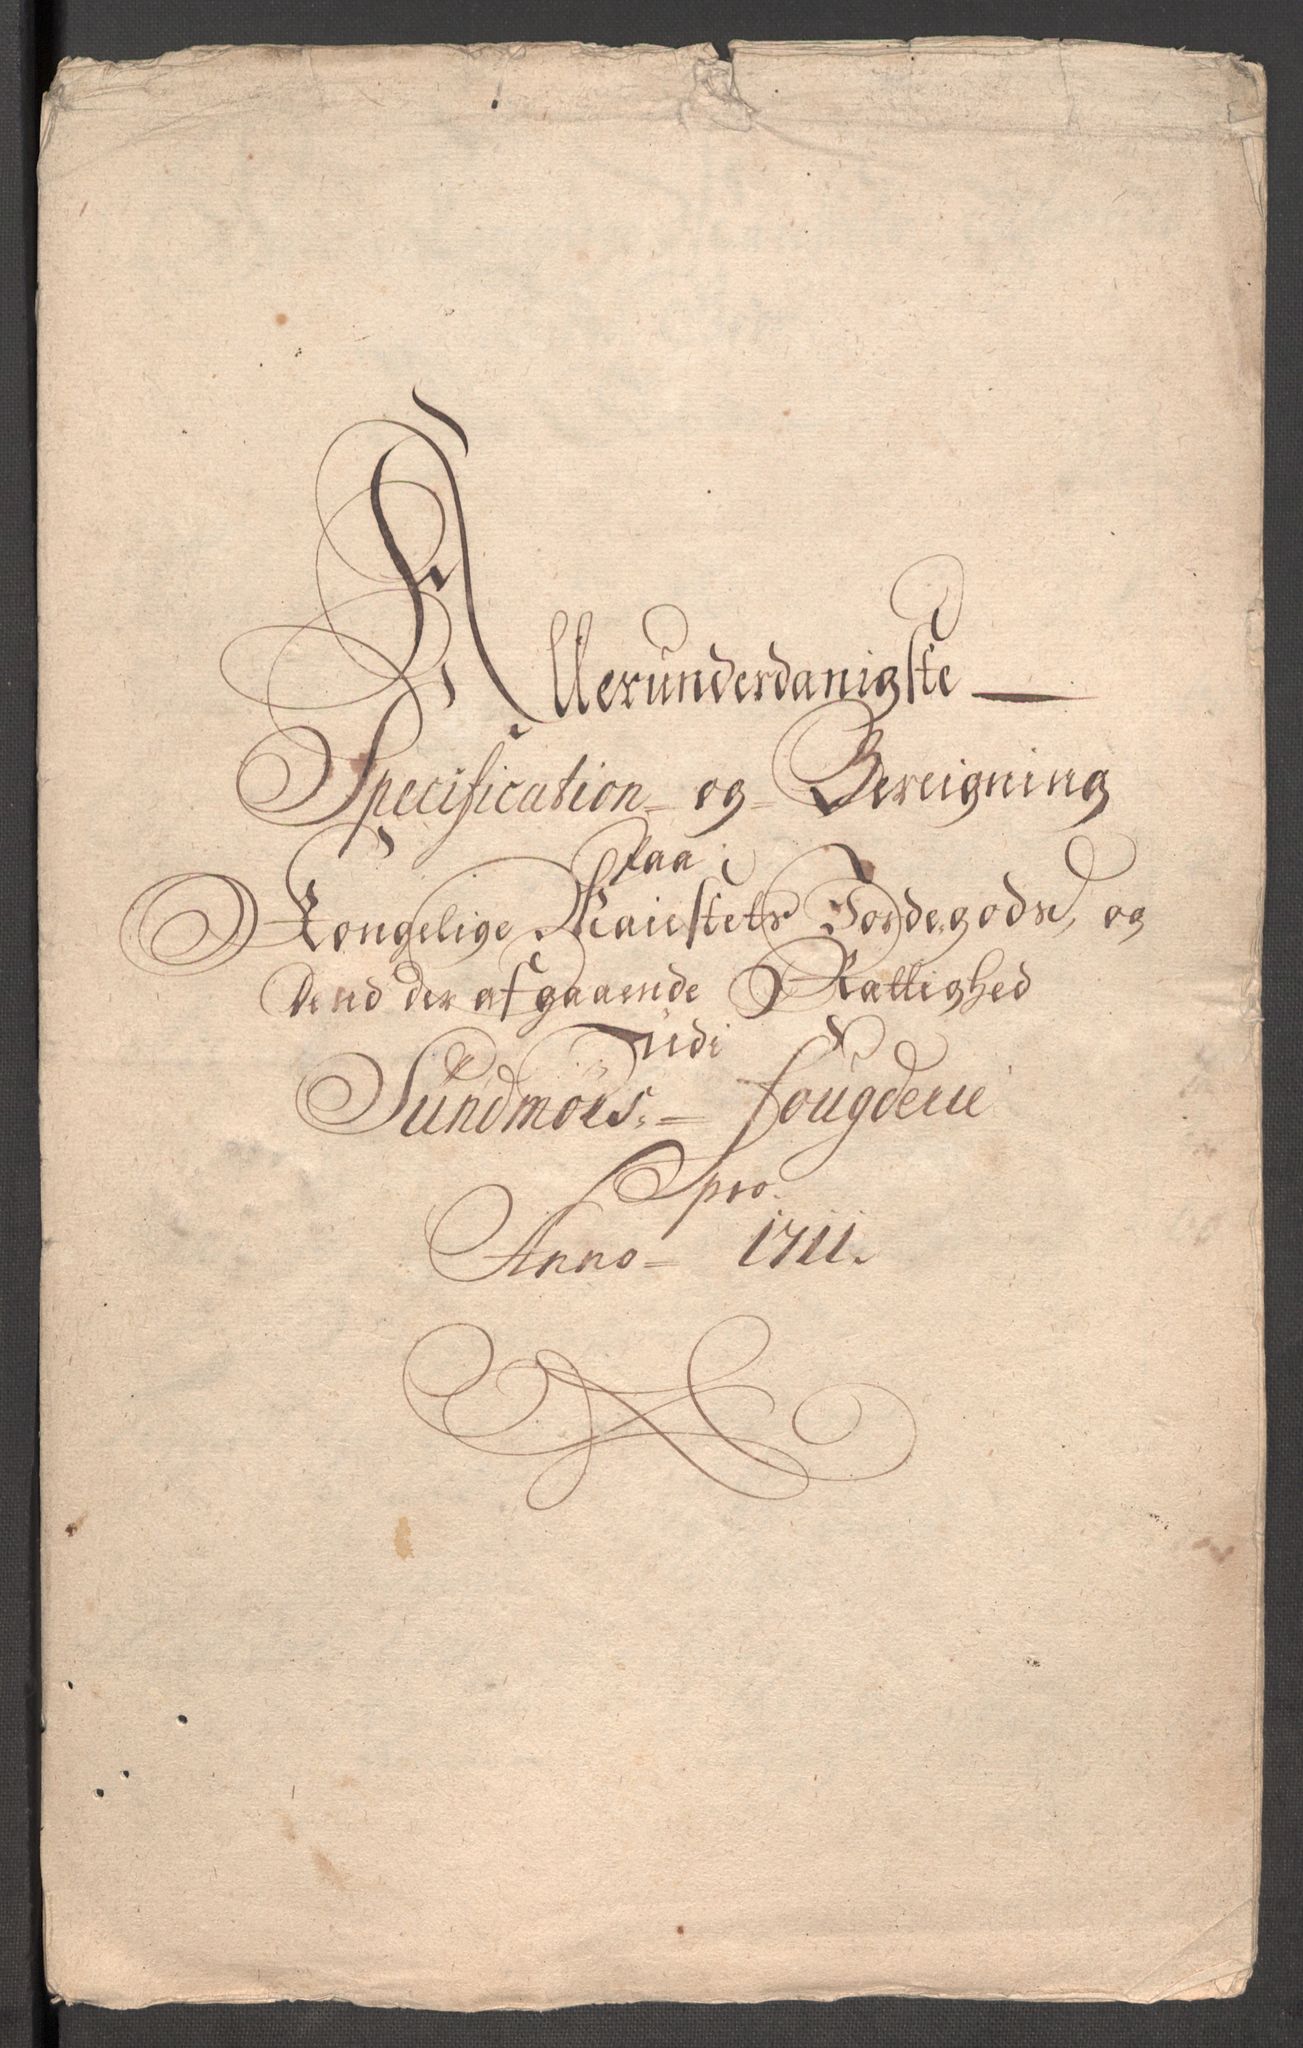 Allerunderdanigste
Specification og Bereigning
Paa
Kongelige Maiestets Jordegods, og
dend der afgaaende Rattighed
udi
Sundmörs Fougderie
pro
Anno 1711.